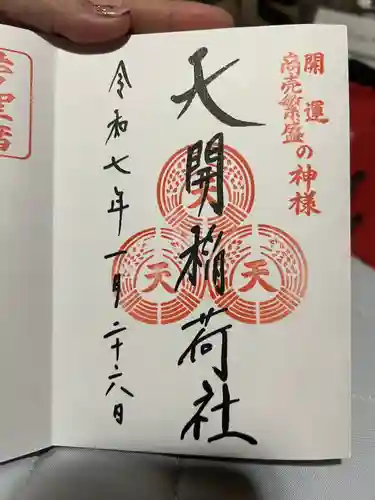 開運
商売繁盛の神様
天開稲荷社
天
天
令和七年一月二十六日